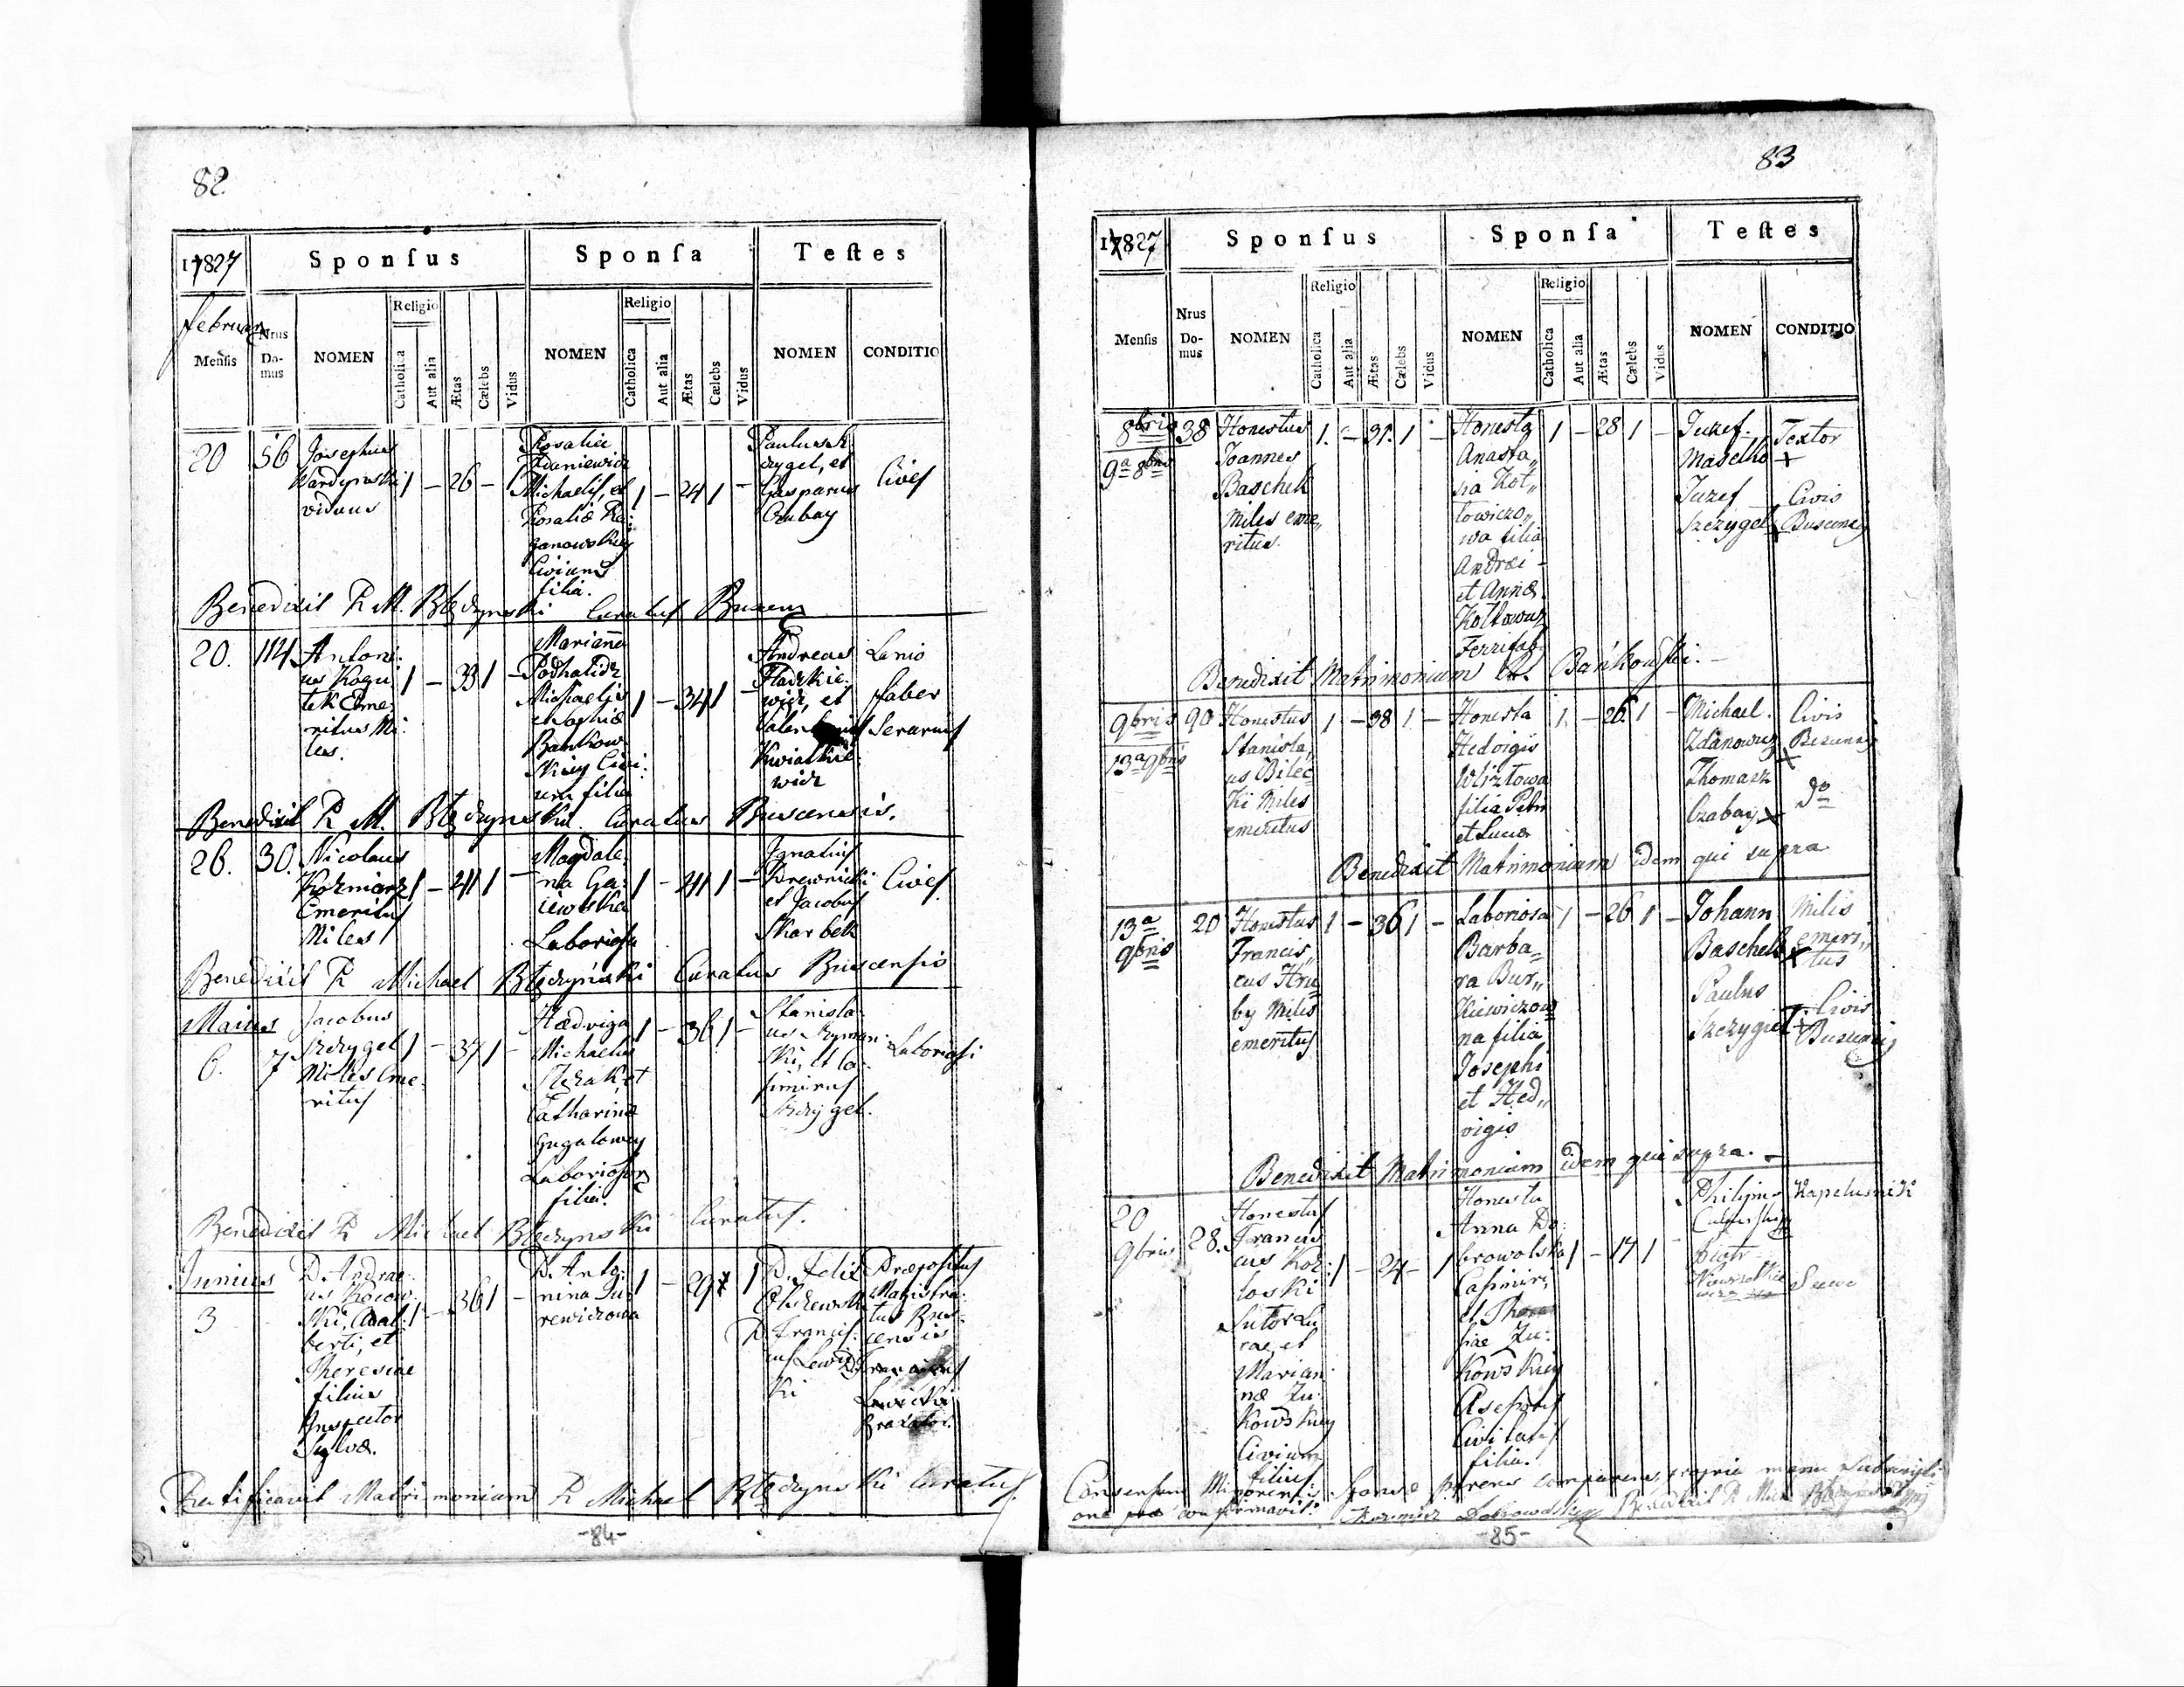 82
17827 Sponsus Sponsa Testes
Februar
Mensis Nrus Domus NOMEN Religio Catholica Aut alia Ætas Cælebs Vidus NOMEN Religio Catholica Aut alia Ætas Cælebs Vidus NOMEN CONDITIO
20 56 Josephus
viduus
1 – 26 – 1
Rosalia
Zdaniewicz
Michaelis, et
Rosaliæ
Civium
filia.
1 – 24 1 –
Szczygel, et
Gasparus
Czubay
Cives
Benedixit R M. Błędzynski Curatus
20. 114 Antoni:
us Kogu
tek Eme
ritus Mi
les.
1 – 33 1 –
Marianna
Podhalicz
Michaelis
et Sophiæ
Bankow
skiey Civi:
um filia
1 – 34 1 –
Andreas
wicz, et
Kwiatkie
wicz
Lanio
faber
Serarius
Benedixit R M. Błędzynski Curatus Buscensis.
26. 30. Nicolaus
Kozmiarz
Emeritus
Miles
1 – 41 1 –
Magdale
na Ga:
iewska
Laboriosa
1 – 41 1 –
Ignatius
Drewnicki
et Jacobus
Skarbek
Cives
Benedixit R Michael Błędzyński Curatus Buscensis
Maius
6. 7 Jacobus
Szczygel
Miles Eme
ritus
1 – 37 1 –
Hædviga
Michaelis
et
Catharinæ
Gugalowey
Laborioson
filia.
1 – 36 1 –
Stanisla
us Szyman:
ski, et Ca:
simirus
Szczygel.
Laboriosi
Benedixit R Michael Błędzynski Curatus.
Junius
3 D. Andræ:
us
ski, Adal:
berti, et
Theresiae
filius
Inspector
Sylvæ.
1 – 36 1 –
D. Anto:
nina Ju
rewiczowa
1 – 29 1
D. Felix
Olszewski
D. Francis:
cus Lewic
ki
Præpositus
Magistra
tus Bus
censis
Lewicki
Braxator
Ratificavit Matrimonium R Michael Błędzynski Curatus.
-84-
83
17827 Sponsus Sponsa Testes
Mensis Nrus Domus NOMEN Religio Catholica Aut alia Ætas Cælebs Vidus NOMEN Religio Catholica Aut alia Ætas Cælebs Vidus NOMEN CONDITIO
8bris
9a 8bris
38 Honestus
Joannes
Baschek
Miles eme„
ritus.
1. – 31. 1 –
Honesta
Anasta„
sia Kot„
towiczo„
wa filia
Andrei
et Annæ
1 – 28 1 –
Juzef
Maselko
Juzef
Szczygel
Textor
+
Civis
Buscensis
Benedixit Matrimonium Bańkowski. –
9bris
13a 9bris
90 Honestus
Stanisla„
us Bilec
ki Miles
emeritus
1 – 38 1 –
Honesta
Hedvigis
filia Petri
et Lucia
1. – 26 1 –
Michael
Zdanowicz
Thomasz
Czabay +
Civis
do
Benedixit Matrimonium idem qui supra
13a
9bris
20 Honestus
Francis„
cus Hru
by Miles
emeritus
1 – 36 1 –
Laboriosa
Barba„
ra Bur„
kiewiczow
na filia
Josephi
et Hed„
vigis
1 – 26 1 –
Johann
Baschek
Paulus
Szczygiel
Miles
emeri„
tus
Civis
Benedixit Matrimonium idem qui supra. –
20
9bris
28. Honestus
Francis
cus Koz:
loski
Sutor Lu
cae, et
Marian
næ Zu:
kowskiey
Civium
filius
1 – 24 – 1
Honesta
Anna Do:
browolska
Casimiri
et
Zu:
kowskiey
Civitatis
filia.
1 – 17 1
Philip
Piotr
Kapelusnik
Consensum Minorennis Sponsæ parens comparens propria manu
confirmavit. Benedixit R Mich
-85-